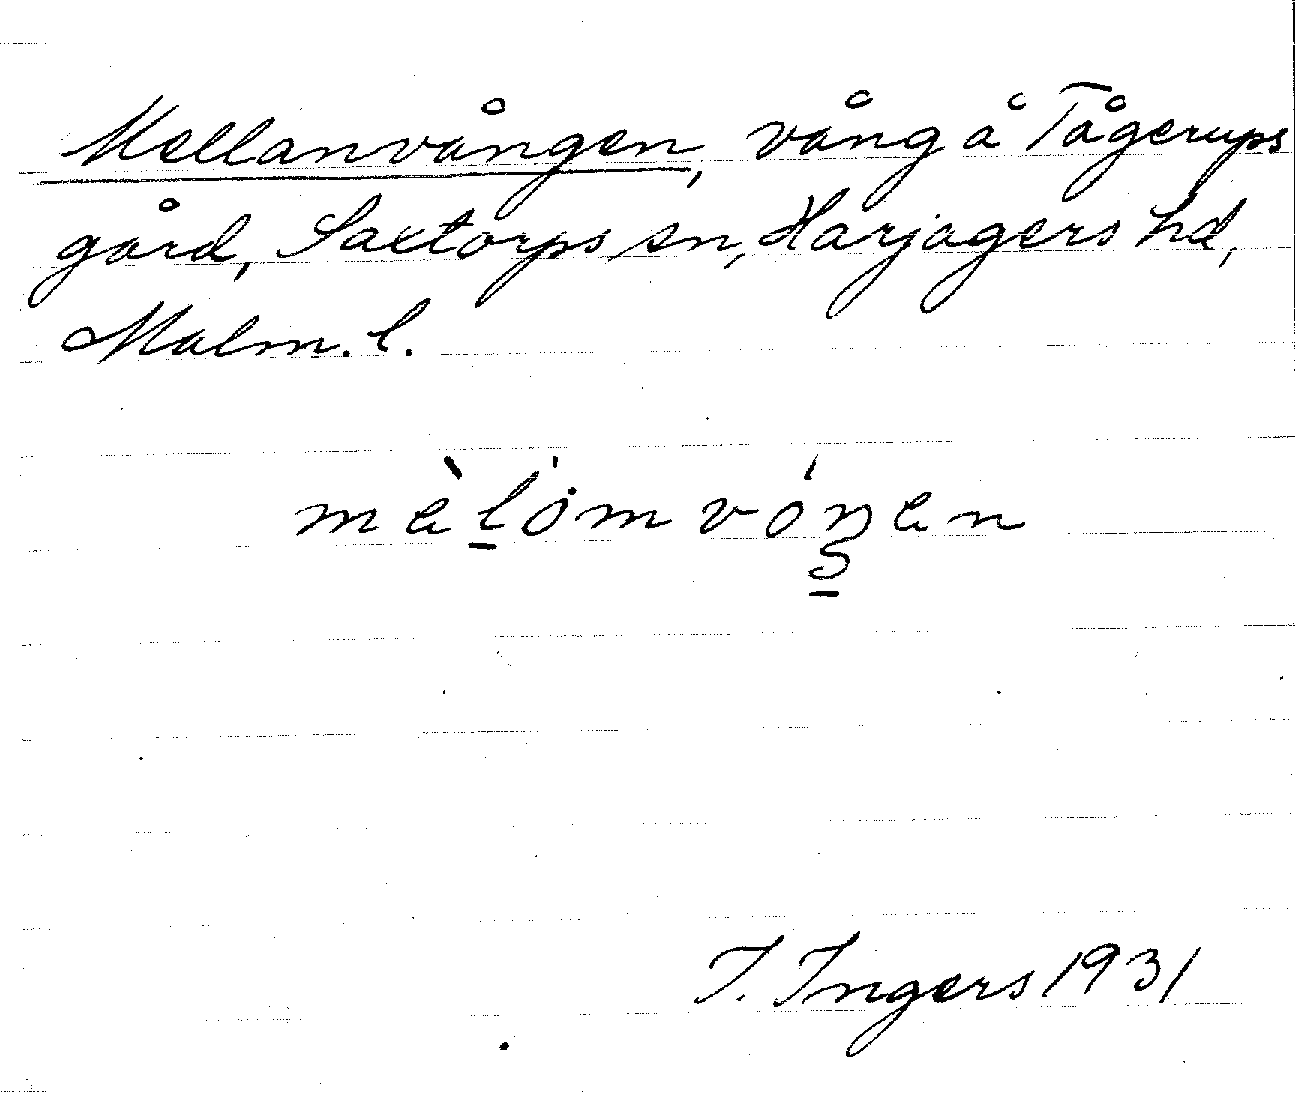 Mellanvången, vång å Tågerups
gård, Saxtorps sn, Harjagers hd,
Malm. l.
mèḻömvóŋen
I. Ingers 1931